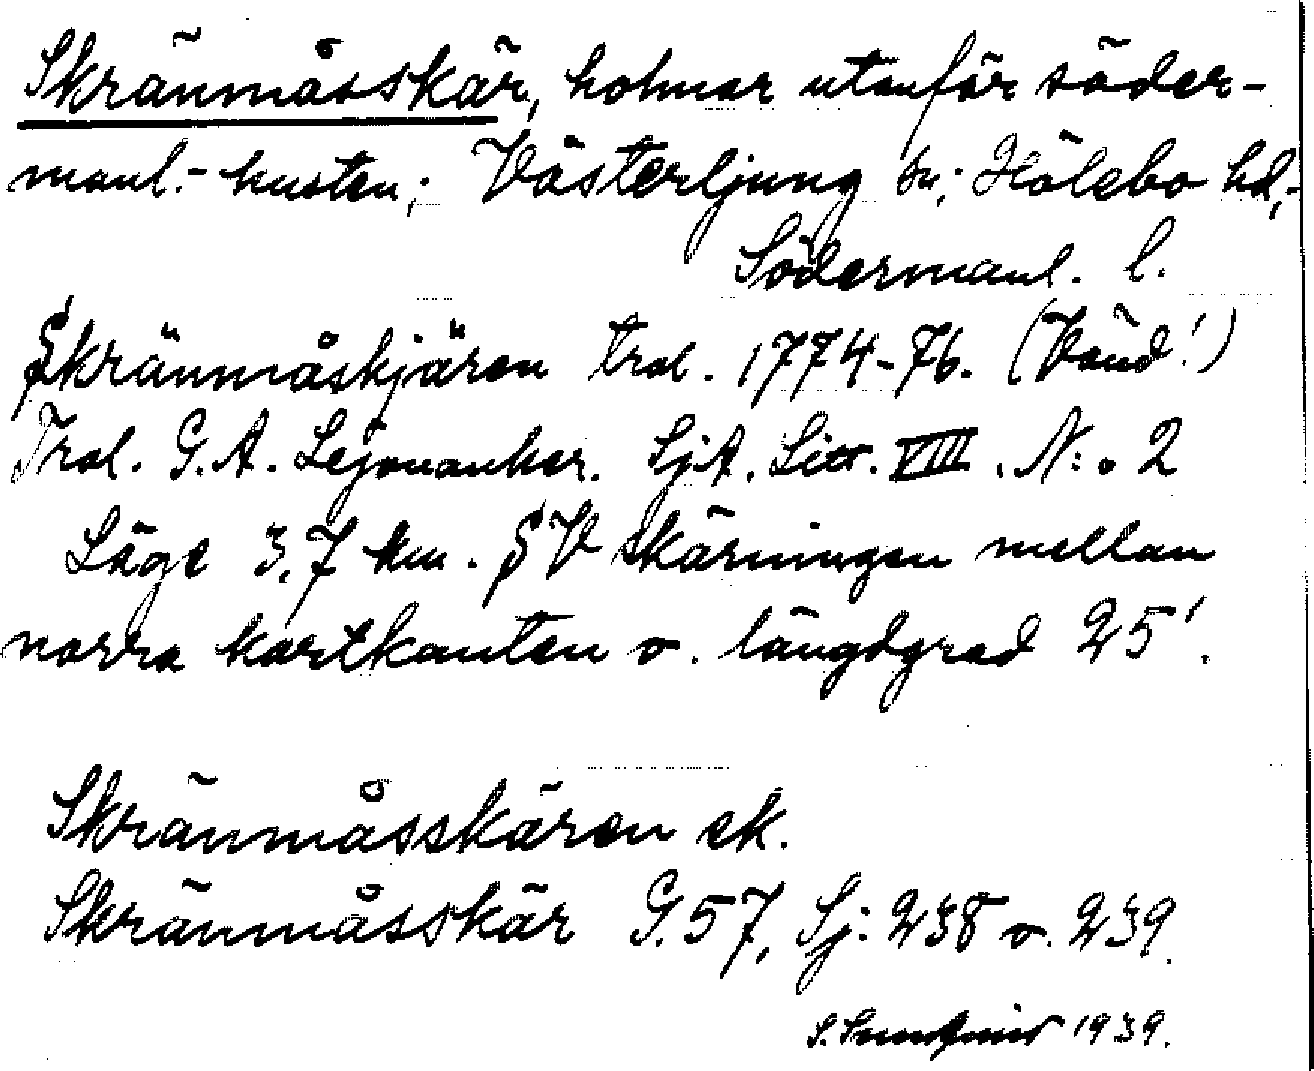 Skränmåsskär, holmar utanför söder-
manl.- kusten; Västerljung sn; Hölebo hd,-
Södermanl. l.
Skränmåskjären trol. 1774-76. (Vänd!)
Trol. G.A. Lejonanker. SjA. Litt. VIII. N:o 2
Läge 3,7 km. SV skärningen mellan
norra kartkanten o. längdgrad 25'.
Skränmåsskären ek.
Skränmåsskär G.57, Sj: 238 o. 239.
S. 1939.